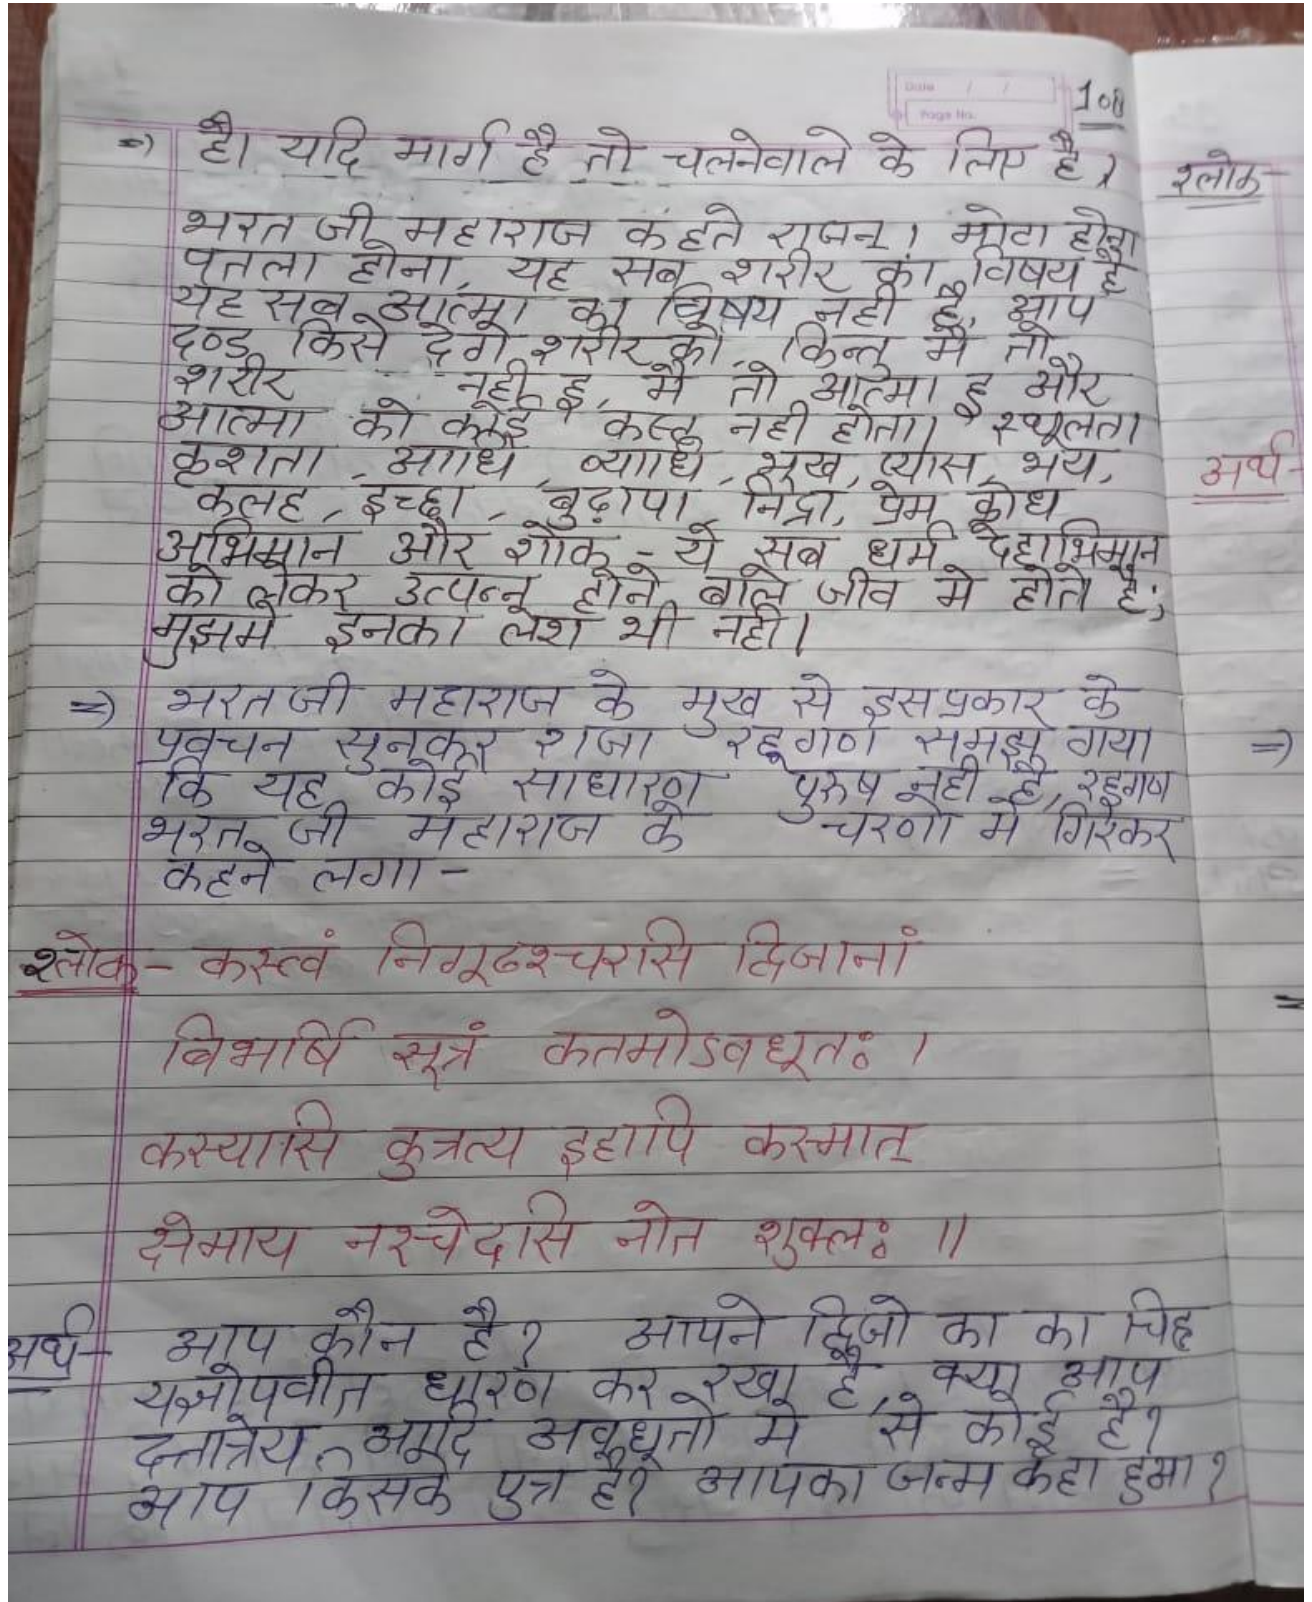 Date / /
Page No.
108
=) है। यदि मार्ग है तो चलनेवाले के लिए है।
भरत जी महाराज कहते राजन्। मोटा होना
पतला होना, यह सब शरीर का विषय है
यह सब आत्मा का विषय नही है, आप
दण्ड किसे देगे शरीर को, किन्तु मै तो
शरीर नही हु, मै तो आत्मा हु और
आत्मा को कोई कस्ट नही होता। स्थूलता
कृशता, आधि, व्याधि, भूख, प्यास, भय,
कलह, इच्छा, बुढ़ापा, निद्रा, प्रेम, क्रोध
अभिमान और शोक - ये सब धर्म देहाभिमान
को लेकर उत्पन्न होने वाले जीव मे होते है;
मुझमे इनका लेश भी नही।
=) भरत जी महाराज के मुख से इसप्रकार के
प्रवचन सुनकर राजा रहूगण समझ गया
कि यह कोई साधारण पुरुष नही है, रहुगण
भरत जी महाराज के चरणो मे गिरकर
कहने लगा -
श्लोक - कस्त्वं निगूढश्चरसि द्विजानां
बिभर्षि सूत्रं कतमोऽवधूतः ।
कस्यासि कुत्रत्य इहापि कस्मात्
क्षेमाय नश्चेदसि नोत शुक्लः ॥
अर्थ - आप कौन है? आपने द्विजो का का चिह्न
यज्ञोपवीत धारण कर रखा है, क्या आप
दत्तात्रेय आदि अवधूतो मे से कोई है?
आप किसके पुत्र है? आपका जन्म कहा हुआ?
श्लोक -
अर्थ -
=)